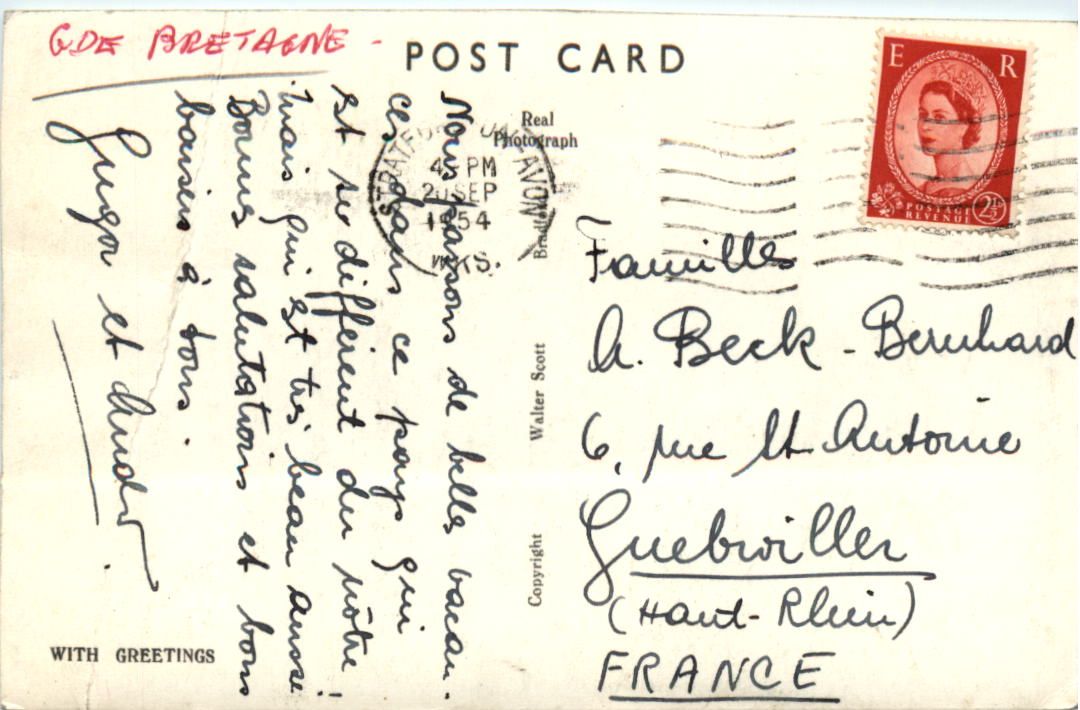 GDE BRETAGNE -
POST CARD
E R
POSTAGE
REVENUE
2½D
STRATFORD UPON AVON
45 PM
2 SEP
1954
WKS.
Nous passons de belles vacan-
ces dans ce pays qui
est si différent du nôtre
mais qui est très beau aussi!
Bonnes salutations et bons
baisers à tous.
et
WITH GREETINGS
Real
Photograph
Copyright Walter Scott Bradford
Familles
A. Beck - Bernhard
6, rue St Antoine
Guebwiller
(Haut-Rhin)
FRANCE